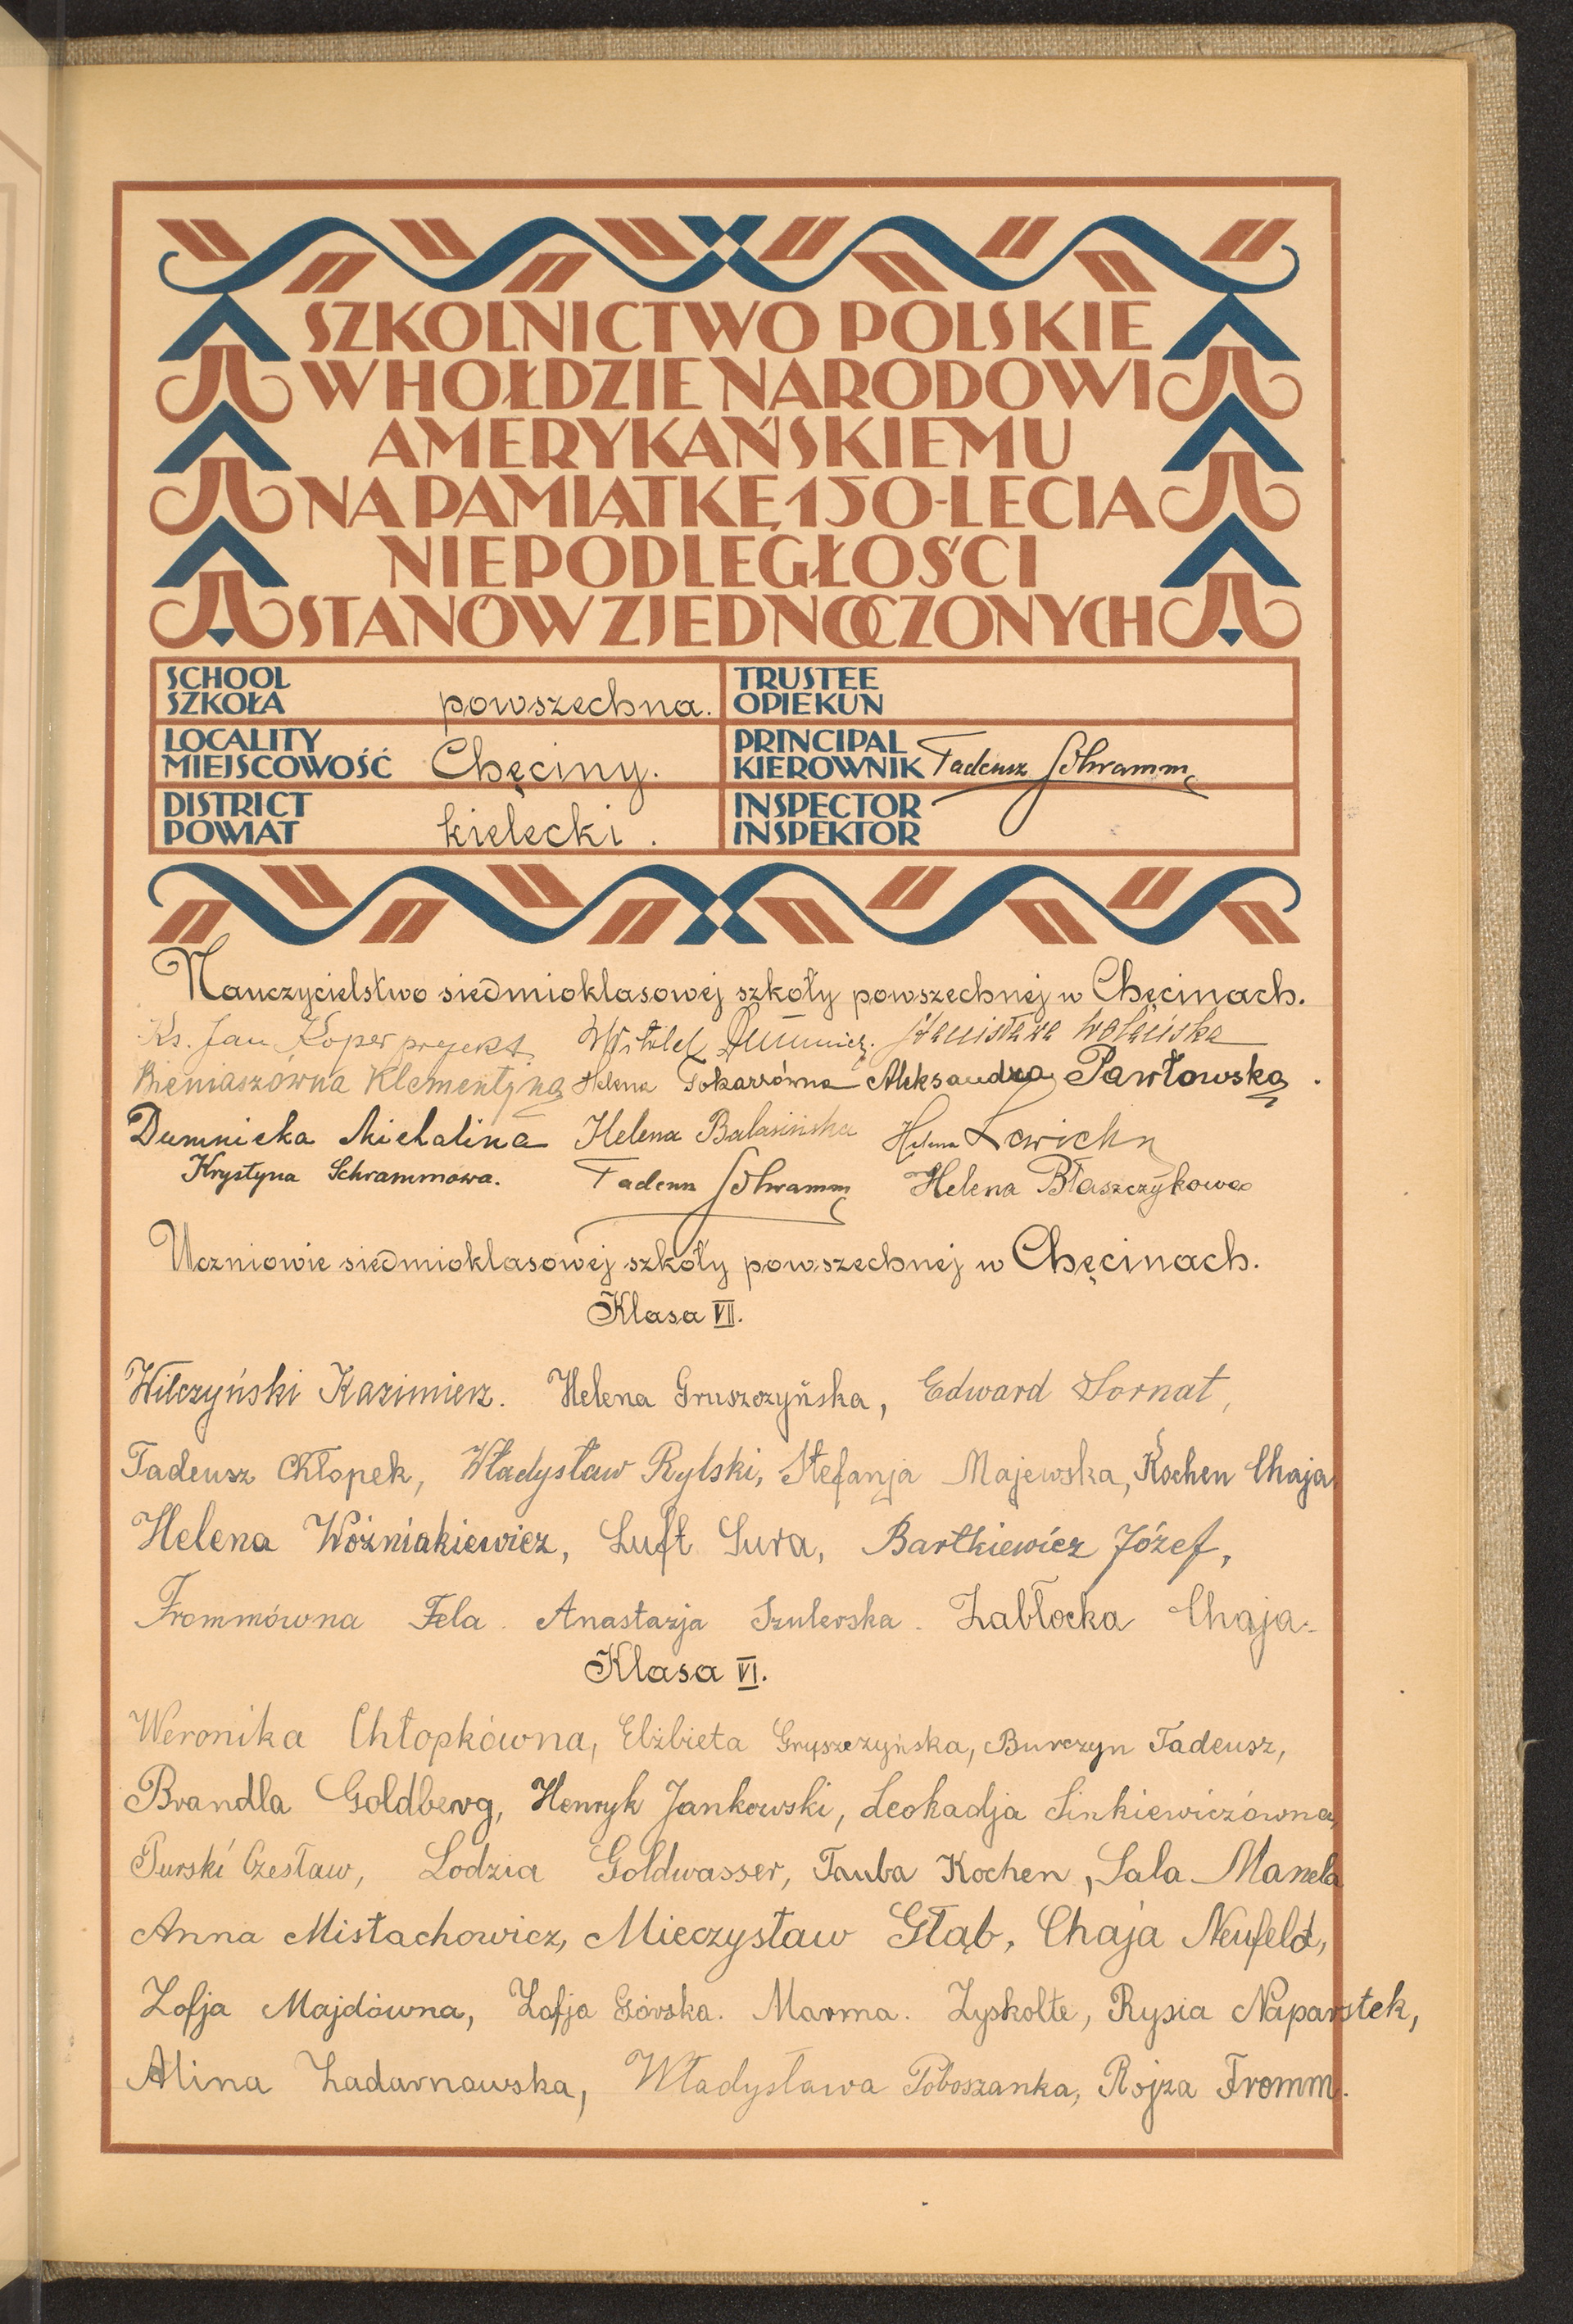 SZKOLNICTWO POLSKIE
W HOŁDZIE NARODOWI
AMERYKAŃSKIEMU
NA PAMIĄTKĘ 150-LECIA
NIEPODLEGŁOŚCI
STANÓW ZJEDNOCZONYCH
SCHOOL
SZKOŁA powszechna.
TRUSTEE
OPIEKUN
LOCALITY
MIEJSCOWOŚĆ Chęciny.
PRINCIPAL
KIEROWNIK Tadeusz Schramm
DISTRICT
POWIAT kielecki.
INSPECTOR
INSPEKTOR
Nauczycielstwo siedmioklasowej szkoły powszechnej w Chęcinach.
Ks. Jan Koper prefekt Witold Stanisława Wolańska
Bieniaszówna Klementyna Helena Tokarzówna Aleksandra Pawłowska.
Dumnicka Michalina Helena Balasińska Helena
Krystyna Schrammowa. Tadeusz Schramm Helena Błaszczykowa
Uczniowie siedmioklasowej szkoły powszechnej w Chęcinach.
Klasa VII.
Wilczyński Kazimierz. Helena Gruszczyńska, Edward Sornat,
Tadeusz Chłopek, Władysław Rylski, Stefanja Majewska, Kochen Chaja,
Helena Woźniakiewicz, Luft Sura, Bartkiewicz Józef,
Frommówna Fela. Anastazja Szulerska. Zabłocka Chaja.
Klasa VI.
Weronika Chłopkówna, Elżbieta Gryszczyńska, Burczyn Tadeusz,
Brandla Goldberg, Henryk Jankowski, Leokadja Sinkiewiczówna,
Purski Czesław, Lodzia Goldwasser, Tauba Kochen, Sala Manela
Anna Mistachowicz, Mieczysław Głąb, Chaja Neufeld,
Zofja Majdówna, Zofja Górska. Marma. Zyskolte, Rysia Naparstek,
Alina Zadarnowska, Władysława Poboszanka, Rojza Fromm.